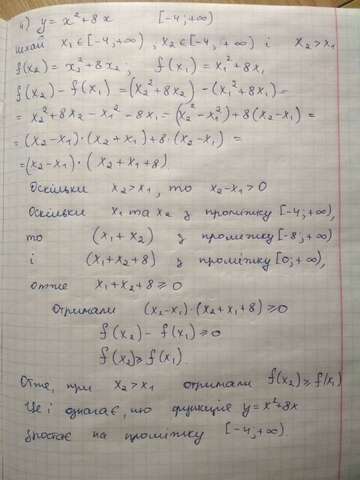 4) y = x² + 8x [-4; +∞)
Нехай x₁ ∈ [-4; +∞), x₂ ∈ [-4; +∞) і x₂ > x₁
f(x₂) = x₂² + 8x₂; f(x₁) = x₁² + 8x₁
f(x₂) - f(x₁) = (x₂² + 8x₂) - (x₁² + 8x₁) =
= x₂² + 8x₂ - x₁² - 8x₁ = (x₂² - x₁²) + 8(x₂ - x₁) =
= (x₂ - x₁) · (x₂ + x₁) + 8 · (x₂ - x₁) =
= (x₂ - x₁) · (x₂ + x₁ + 8)
Оскільки x₂ > x₁, то x₂ - x₁ > 0
Оскільки x₁ та x₂ з проміжку [-4; +∞),
то (x₁ + x₂) з проміжку [-8; +∞)
і (x₁ + x₂ + 8) з проміжку [0; +∞),
отже x₁ + x₂ + 8 ≥ 0
Отримали (x₂ - x₁) · (x₂ + x₁ + 8) ≥ 0
f(x₂) - f(x₁) ≥ 0
f(x₂) ≥ f(x₁)
Отже, при x₂ > x₁ отримали f(x₂) ≥ f(x₁)
Це і означає, що функція y = x² + 8x
зростає на проміжку [-4; +∞)